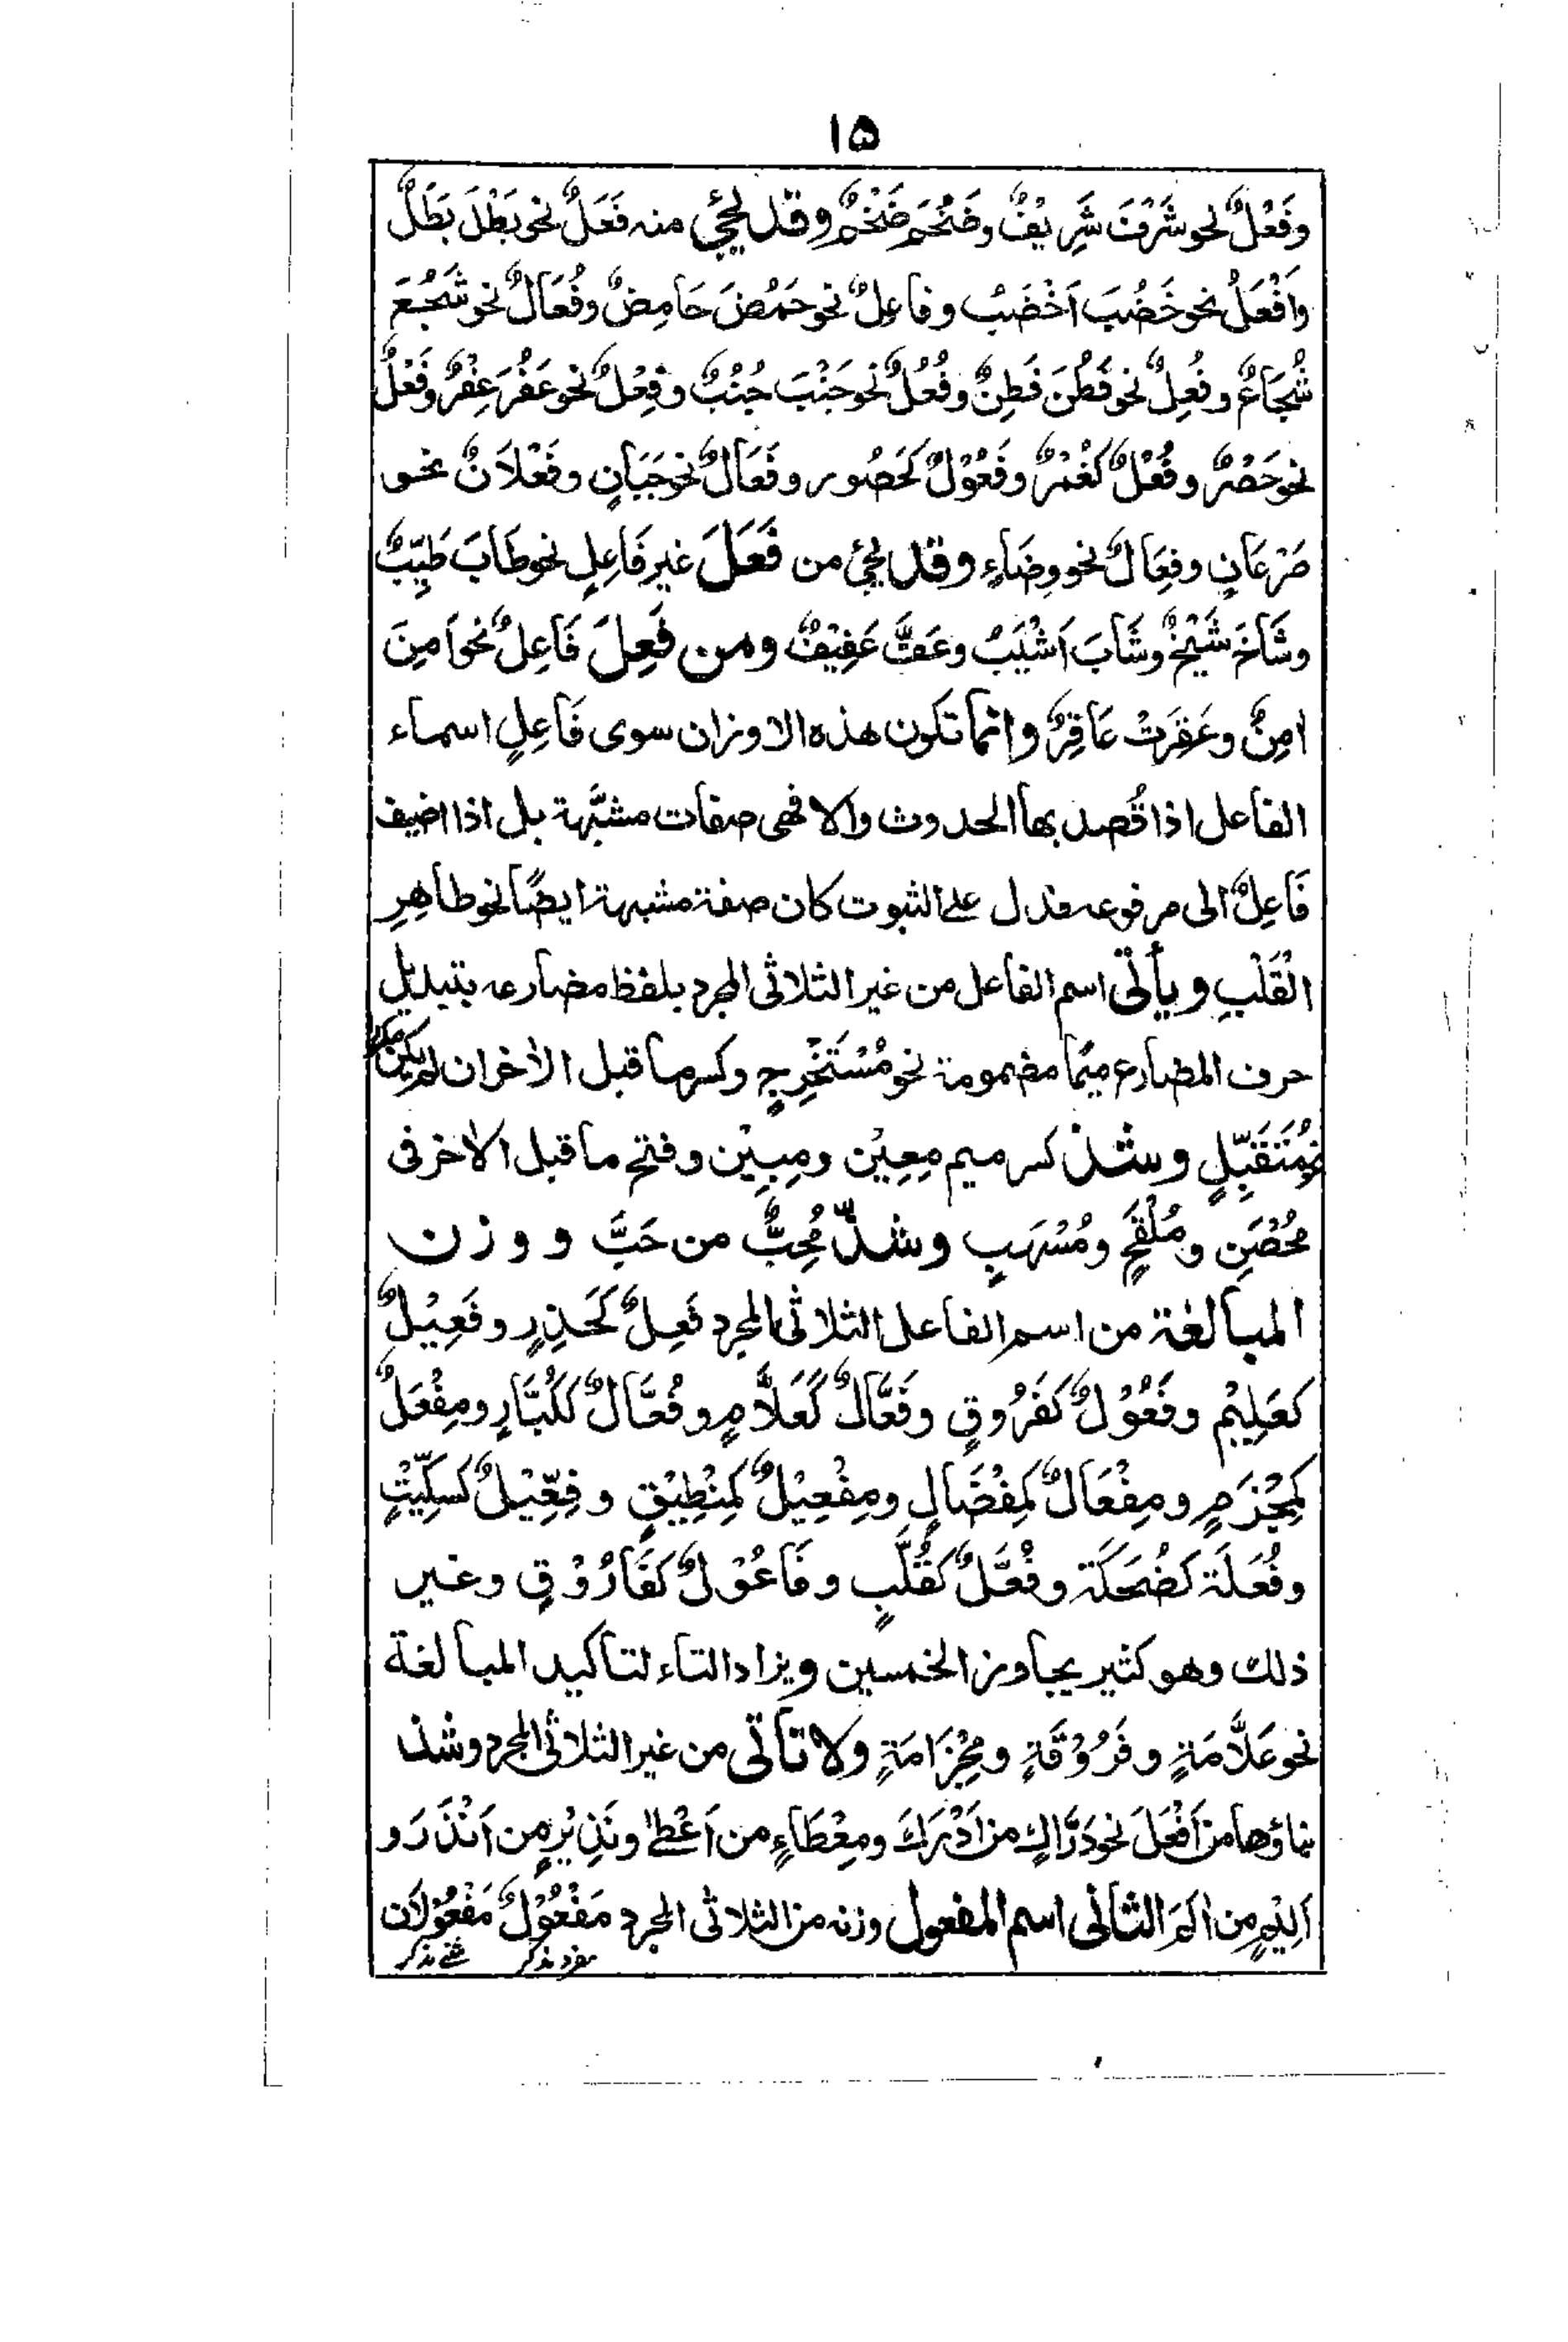 ۱۵
وفَعْلٌ نحو شَرُفَ شَرِيْفٌ وضَخُمَ ضَخْمٌ وقد يجيُ منه فَعَلٌ نحو بَطُلَ بَطَلٌ
وَاَفْعَلُ نحو خَضُبَ اَخْضَبُ وفاعِلٌ نحو حَمُضَ حَامِضٌ وفُعَالٌ نحو شَجُعَ
شُجَاعٌ وفَعِلٌ نحو فَطُنَ فَطِنٌ وفُعُلٌ نحو جَنُبَ جُنُبٌ وفِعْلٌ نحو عَفُرَ عِفْرٌ وفَعْلٌ
نحو حَصْرٌ وفُعْلٌ كغُمْرٌ وفَعُوْلٌ كَحَصُور وفَعَالٌ نحو جَبَانٍ وفَعْلَانٌ نحو
ضَرْعَانٍ وفِعَالٌ نحو وِضَاءٍ وقد يجئ من فَعَلَ غير فَاعِلٍ نحو طَابَ طَيِّبٌ
وشَاخَ شَيْخٌ وشَابَ اَشْيَبُ وعَفَّ عَفِيْفٌ ومن فَعِلَ فَاعِلٌ نحو اَمِنَ
اٰمِنٌ وعَقِرَتْ عَاقِرٌ وانما تكون هذه الاوزان سوى فَاعِلٍ اسماء
الفاعل اذا قُصد بها الحدوث والا فهى صفات مشبَّهة بل اذا اضيف
فَاعِلٌ الى مرفوعه فدل على الثبوت كان صفة مشبهة ايضًا نحو طاهِرِ
الْقَلْبِ ويأتى اسم الفاعل من غير الثلاثى المجرد بلفظ مضارعه بتبديل
حرف المضارع ميمًا مضمومة نحو مُسْتَخْرِجٍ وكسر ما قبل الأخر ان لم يكن مكسورا
نحو مُتَقَبِّلٍ وشذ كسر ميم مِعِيْن ومِبِيْن وفتح ما قبل الاٰخر فى
مُحْصَنٍ ومُلْقَحٍ ومُسْهَبٍ وشذّ مُحِبٌّ من حَبَّ ووزن
المبالغة من اسم الفاعل الثلاثى المجرد فَعِلٌ كَحَذِرٍ وفَعِيْلٌ
كعَلِيْمٍ وفَعُوْلٌ كَفَرُوقٍ وفَعَّالٌ كَعَلَّامٍ وفُعَّالٌ كَكُبَّارٍ ومِفْعَلٌ
كَمِجْزَمٍ ومِفْعَالٌ كَمِفْضَالٍ ومِفْعِيْلٌ كَمِنْطِيْقٍ وفِعِّيْلٌ كسِكِّيْتٍ
وفُعَلَة كَضُحَكَة وفُعَّلٌ كَقُلَّبٍ وفَاعُوْلٌ كَفَارُوْقٍ وغير
ذلك وهو كثير يجاوز الخمسين ويزاد التاء لتاكيد المبالغة
نحو عَلَّامَةٍ وفَرُوْقَةٍ ومِجْزَامَةٍ ولا تأتى من غير الثلاثى المجرد وشذ
بناؤها من اَفْعَلَ نحو دَرَّاكٍ من اَدْرَكَ ومِعْطَاءٍ من اَعْطٰى ونَذِيْرٍ من اَنْذَرَ و
اَلِيْمٍ من اٰلَمَ الثانى اسم المفعول وزنه من الثلاثى المجرد مَفْعُوْلٌ مَفْعُوْلَان
مفرد مذكر مثنى مذكر